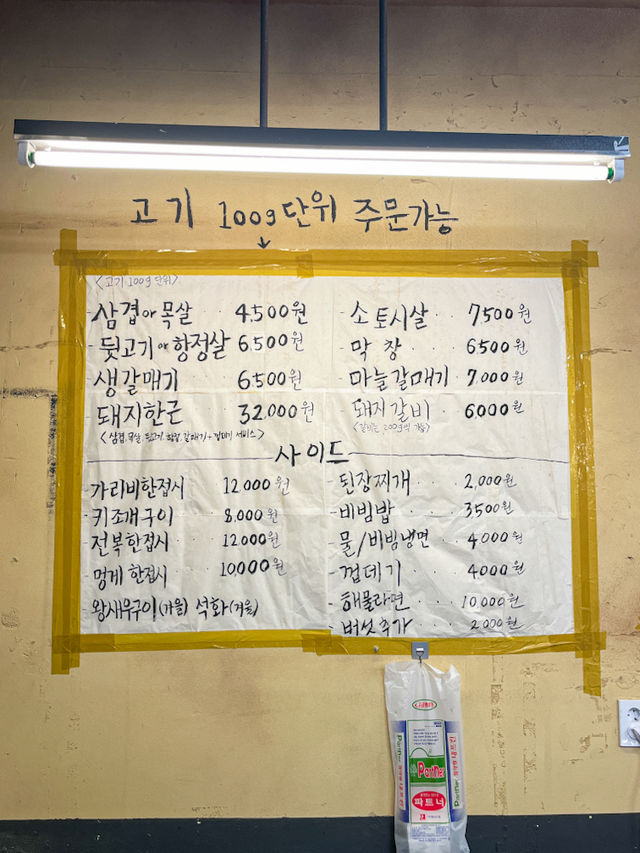 고기 100g단위 주문가능
<고기 100g단위>
삼겹 or 목살 4,500원
뒷고기 or 항정살 6,500원
생갈매기 6,500원
돼지한근 32,000원
소토시살 7,500원
막창 6,500원
마늘갈매기 7,000원
돼지갈비 6,000원
사이드
가리비한접시 12,000원
키조개구이 8,000원
전복한접시 12,000원
멍게 한접시 10,000원
왕새우구이(가을) 석화(겨울)
된장찌개 2,000원
비빔밥 3,500원
물/비빔냉면 4,000원
껍데기 4,000원
해물라면 10,000원
버섯추가 2,000원
Partner
파트너